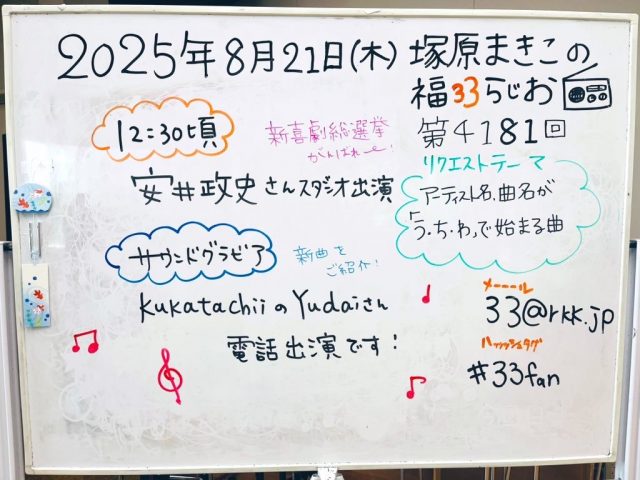 2025年8月21日(木) 塚原まきこの
福33らじお
第4181回
12:30頃
新喜劇総選挙
がんばれー!
安井政史さんスタジオ出演
リクエストテーマ
アーティスト名、曲名が
「う・ち・わ」で始まる曲
サウンドグラビア
新曲を
ご紹介!
kukatachiiのYudaiさん
電話出演です!
メーーール
33@rkk.jp
ハッッシュタグ
#33fan